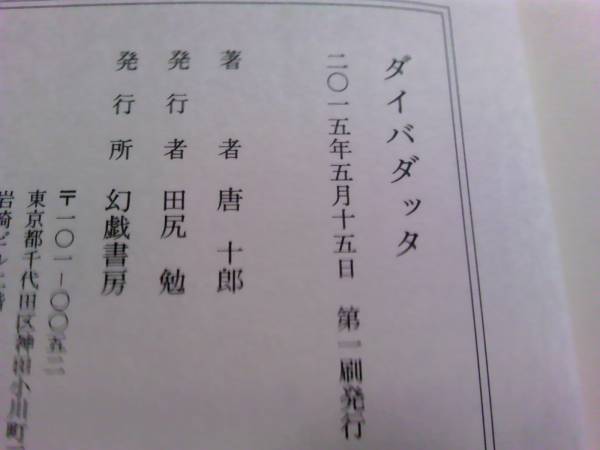 ダイバダッタ
二〇一五年五月十五日 第一刷発行
著者 唐十郎
発行者 田尻勉
発行所 幻戯書房
〒一〇一-〇〇五二
東京都千代田区神田小川町
岩崎ビル二階